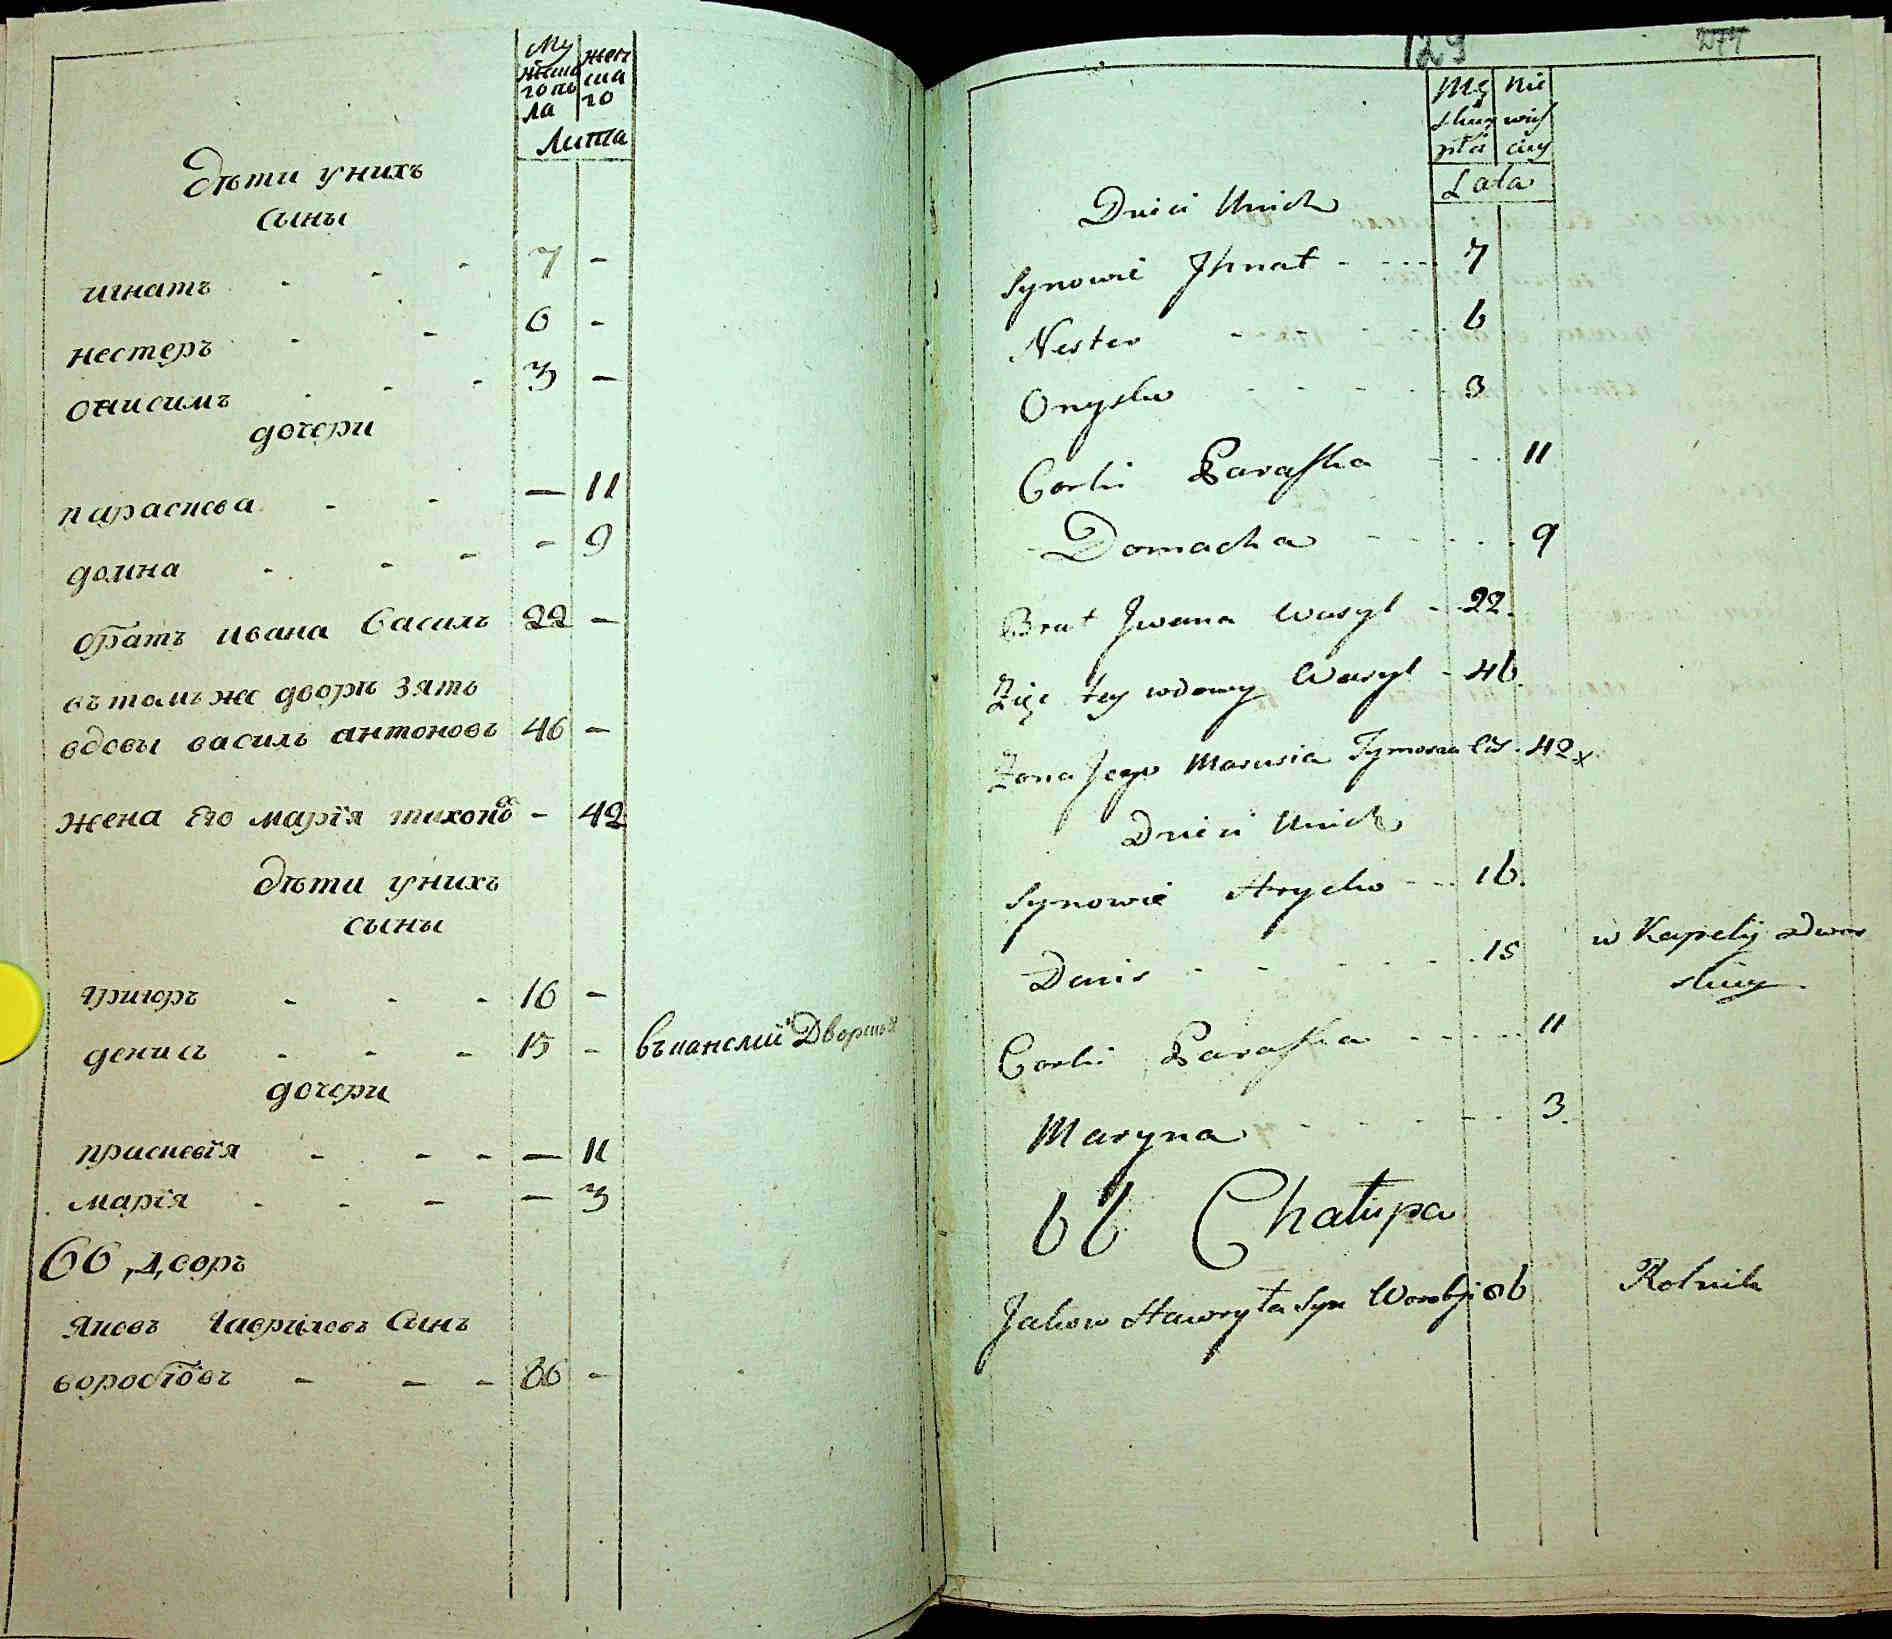 Му
жеска
го по
ла
жен
ска
го
Лита
дѣти у нихъ
сыны
игнатъ - - - 7 -
нестеръ - - 6 -
онисимъ - - - 3 -
дочери
параскева - - — 11
домна - - - - 9
братъ ивана василь 22 -
въ томъ же дворѣ зять
вдовы василь антоновъ 46 -
жена его марїя тихонов - 42
дѣти у нихъ
сыны
григоръ - - - 16 -
денисъ - - - 15 -
дочери
праскевїя - - - — 11
марїя - - - - 3
66 дворъ
яковъ гавриловъ сынъ
воробїовъ - - - 86 -
129
Mę
skiey
płci
Nie
wieś
ciey
Lata
Dzieci Unich
Synowie Ihnat - - - - 7
Nester - - - 6
Onysko - - - - 3
Corki Paraska - - - 11
Domacha - - - - - 9
Brat Iwana Wasyl - - 22.
Zięć tey wdowy Wasyl - 46.
Zona Jego Marusia - 42
Dzieci Unich
Synowie Hrycko - - - 16.
Denis - - - - - - 15
w Kapelij
Corki Paraska - - - - - 11
Maryna - - - - - 3.
66 Chałupa
Jakow Hawryła Syn 86
Rolnik